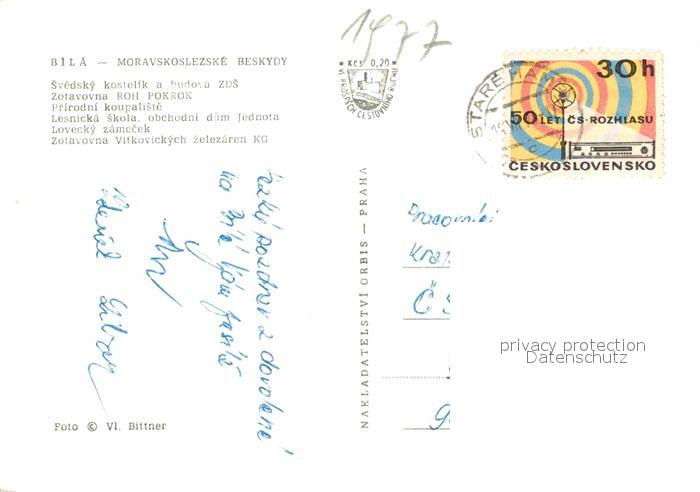 1977
BÍLÁ — MORAVSKOSLEZSKÉ BESKYDY
Švédský kostelík a budova ZDŠ
Zotavovna ROH POKROK
Přírodní koupaliště
Lesnická škola, obchodní dům Jednota
Lovecký zámeček
Zotavovna Vítkovických železáren KG
Kčs 0,20
VE PROSPĚCH CESTOVNÍHO RUCHU
STARÉ HAM
30h
50 LET ČS. ROZHLASU
ČESKOSLOVENSKO
pozdrav z dovolené
na Bílé Vám
Zdeněk
NAKLADATELSTVÍ ORBIS — PRAHA
Pracovníci
Kraj
Č S
privacy protection
Datenschutz
Foto © Vl. Bittner